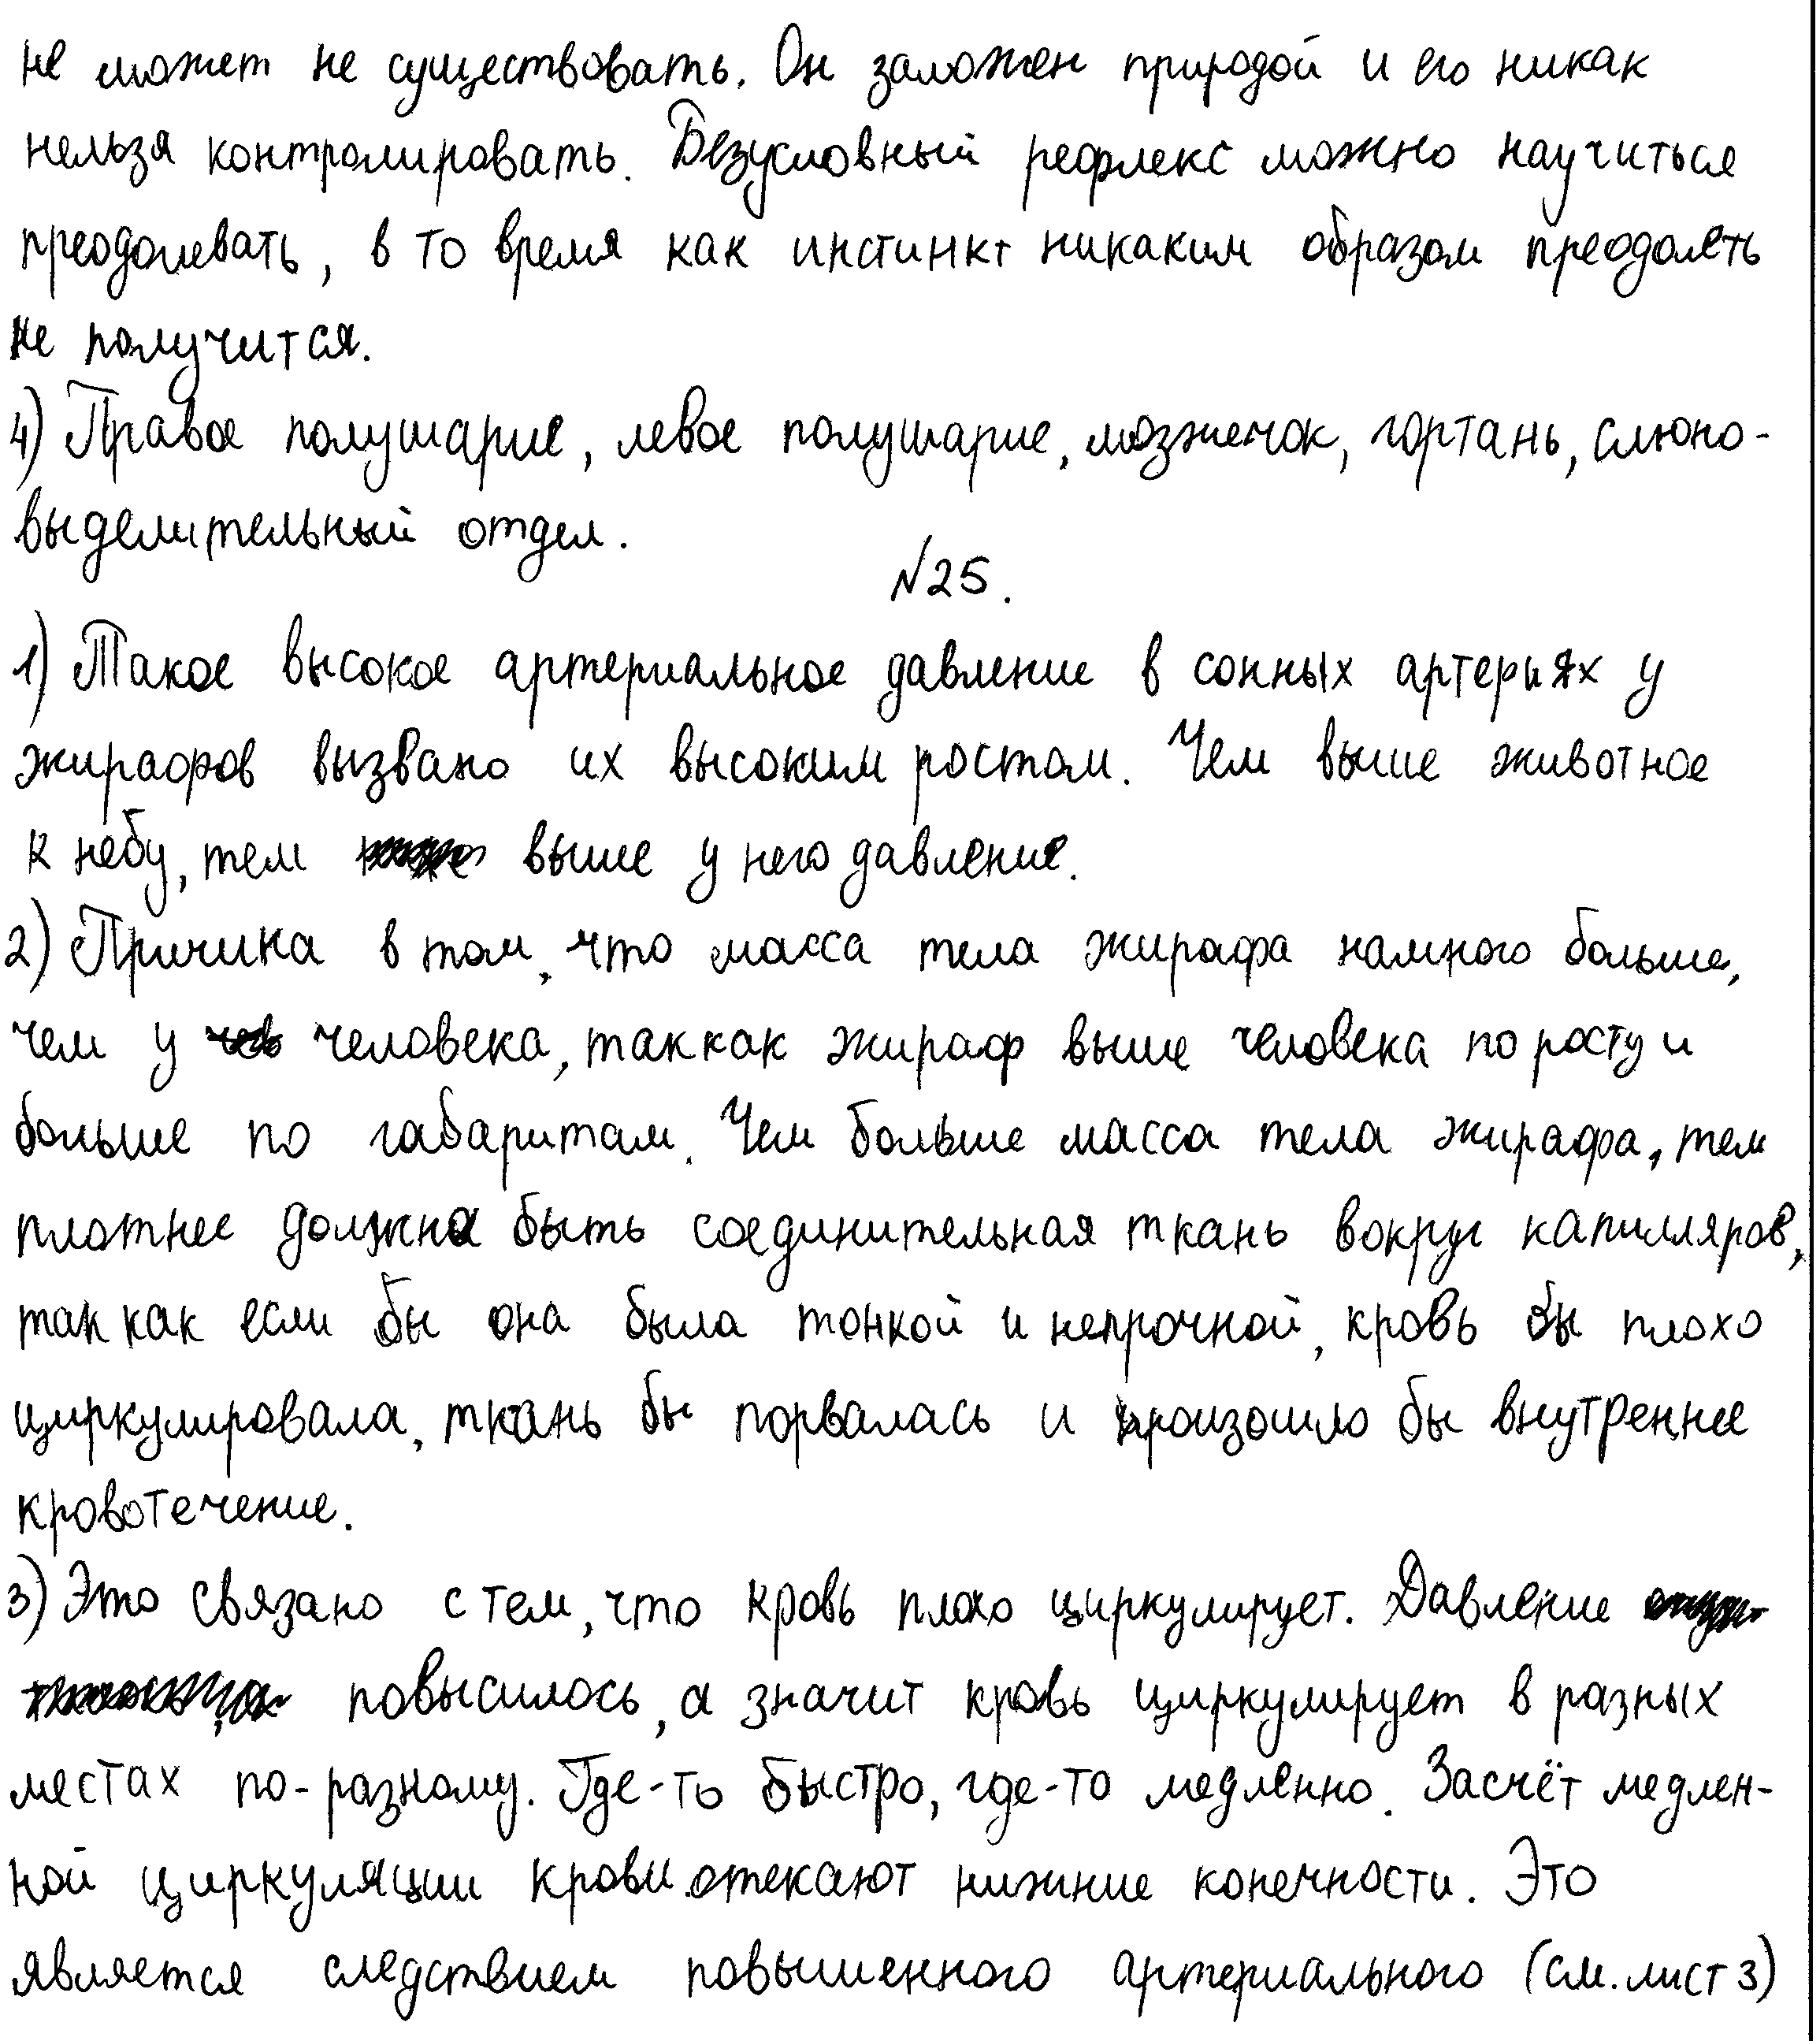 не может не существовать. Он заложен природой и его никак
нельзя контролировать. Безусловный рефлекс можно научиться
преодолевать, в то время как инстинкт никаким образом преодолеть
не получится.
4) Правое полушарие, левое полушарие, мозжечок, гортань, слюно-
выделительный отдел.
№25.
1) Такое высокое артериальное давление в сонных артериях у
жирафов вызвано их высоким ростом. Чем выше животное
к небу, тем выше у него давление.
2) Причина в том, что масса тела жирафа намного больше,
чем у человека, так как жираф выше человека по росту и
больше по габаритам. Чем больше масса тела жирафа, тем
плотнее должна быть соединительная ткань вокруг капилляров,
так как если бы она была тонкой и непрочной, кровь бы плохо
циркулировала, ткань бы порвалась и произошло бы внутреннее
кровотечение.
3) Это связано с тем, что кровь плохо циркулирует. Давление
повысилось, а значит кровь циркулирует в разных
местах по-разному. Где-то быстро, где-то медленно. Засчёт медлен-
ной циркуляции крови отекают нижние конечности. Это
является следствием повышенного артериального (см. лист 3)